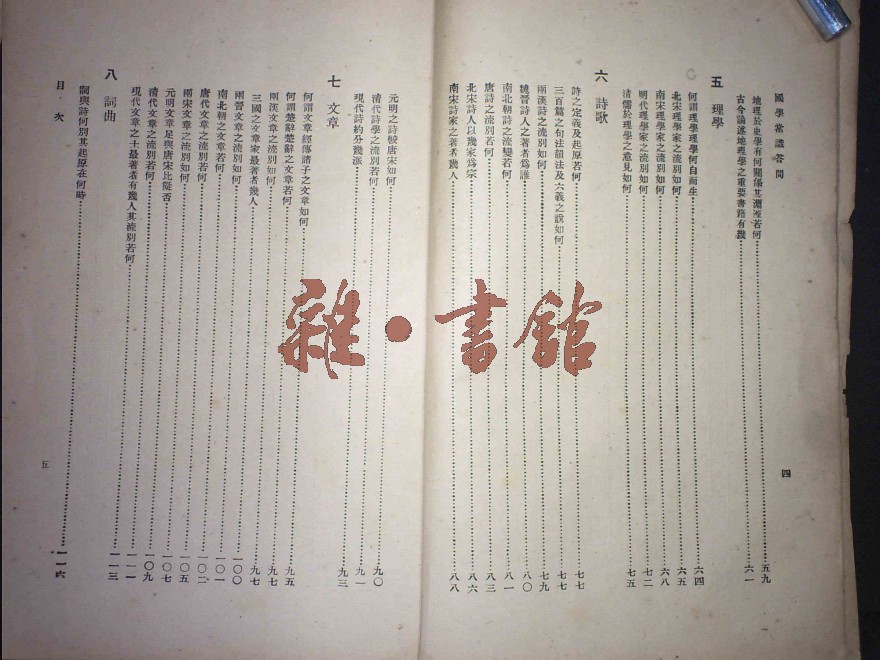 國學常識答問
地理於史學有何關係其淵源若何 五九
古今論述地理學之重要書籍有幾 六一
五 理學
何謂理學理學何自而生 六四
北宋理學家之流別如何 六五
南宋理學家之流別如何 六八
明代理學家之流別如何 七二
清儒於理學之意見如何 七五
六 詩歌
詩之定義及起原若何 七七
三百篇之句法韻法及六義之說如何 七七
兩漢詩之流別如何 七九
魏晉詩人之著者爲誰 八〇
南北朝詩之流變若何 八一
唐詩之流別若何 八三
北宋詩人以幾家爲宗 八六
南宋詩家之著者幾人 八八
四
元明之詩較唐宋如何 九〇
清代詩學之流別如何 九一
現代詩約分幾派 九三
七 文章
何謂文章經傳諸子之文章如何 九五
何謂楚辭楚辭之文章若何 九七
兩漢文章之流別如何 九七
三國之文章家最著者幾人 九七
兩晉文章之流別如何 一〇〇
南北朝之文章若何 一〇一
唐代文章之流別若何 一〇二
兩宋文章之流別如何 一〇五
元明文章足與唐宋比隆否 一〇七
清代文章之流別如何 一〇九
現代文章之士最著者有幾人其流別若何 一一一
八 詞曲 一一三
詞與詩何別其起原在何時 一一六
目次
五
雜·書館